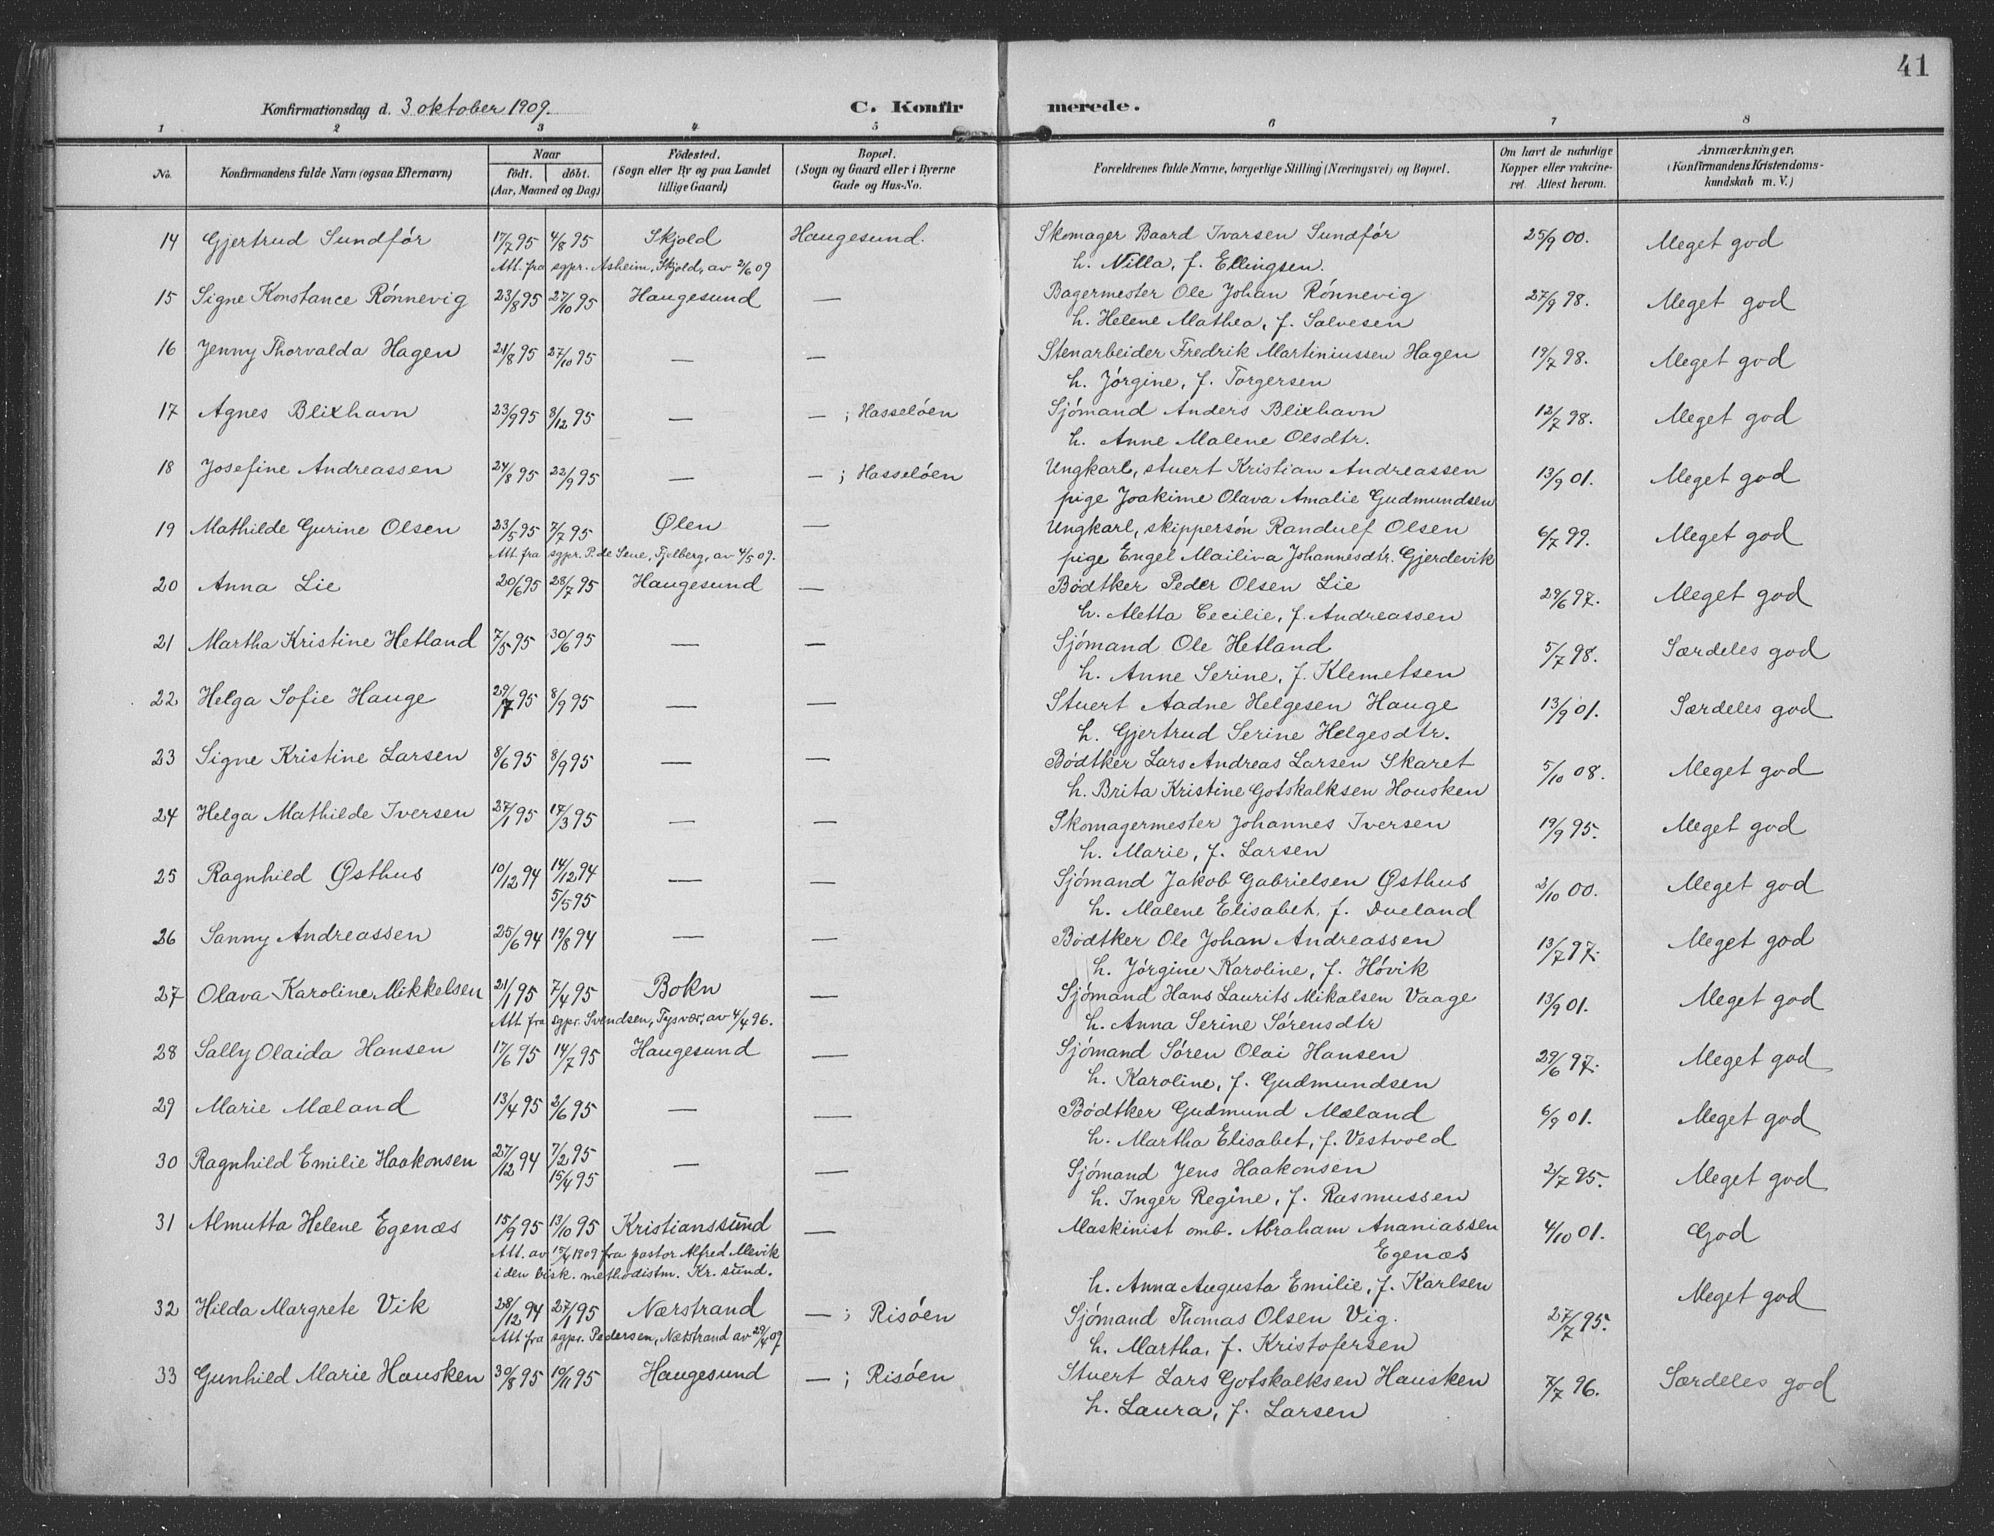 41
Konfirmationsdag d. 3 oktober 1909. C. Konfirmerede.
1 2 3 4 5 6 7 8
No. Konfirmandens fulde Navn (ogsaa Efternavn) Naar født. døbt. (Aar, Maaned og Dag) Fødested. (Sogn eller By og paa Landet tillige Gaard) Bopæl. (Sogn og Gaard eller i Byerne Gade og Hus-No. Forældrenes fulde Navne, borgerlige Stilling (Næringsvei) og Bopæl. Om havt de naturlige Kopper eller vakcineret. Attest herom. Anmærkninger. (Konfirmandens Kristendomskundskab m. V.)
14 Gjertrud Sundfór 17/7 95 4/8 95 Skjold Haugesund. Skomager Baard Ivarsen Sundfór 25/9 00. Meget god
Att. fra sgpr. Asheim, Skjold, av 2/6 09 h. Nilla, f. Ellingsen.
15 Signe Konstance Rønnevig 23/8 95 27/10 95 Haugesund — Bagermester Ole Johan Rønnevig 27/9 98. Meget god
h. Helene Mathea, f. Salvesen
16 Jenny Thorvalda Hagen 21/8 95 27/10 95 — — Stenarbeider Fredrik Martiniussen Hagen 19/7 98. Meget god
h. Jórgine, f. Torgersen
17 Agnes Blixhavn 23/9 95 8/12 95 — — ; Hasselóen Sjómand Anders Blixhavn 12/7 98. Meget god
h. Anne Malene Olsdtr.
18 Josefine Andreassen 24/8 95 22/9 95 — — ; Hasselóen Ungkarl, stuert Kristian Andreassen 13/9 01. Meget god
pige Joakime Olava Amalie Gudmundsen
19 Mathilde Gurine Olsen 23/5 95 7/7 95 Ølen — Ungkarl, skippersón Randulf Olsen 6/7 99. Meget god
Att. fra sgpr. P. de Seue, Fjelberg, av 4/5 09. pige Engel Mailiva Johannesdtr. Gjerdevik
20 Anna Lie 20/6 95 28/7 95 Haugesund — Bódtker Peder Olsen Lie 29/6 97. Meget god
h. Aletta Cecilie, f. Andreassen
21 Martha Kristine Hetland 7/5 95 30/6 95 — — Sjómand Ole Hetland 5/7 98. Særdeles god
h. Anne Serine, f. Klemetsen
22 Helga Sofie Hauge 29/7 95 8/9 95 — — Stuert Aadne Helgesen Hauge 13/9 01. Særdeles god
h. Gjertrud Serine Helgesdtr.
23 Signe Kristine Larsen 8/6 95 8/9 95 — — Bódtker Lars Andreas Larsen Skaret 5/10 08. Meget god
h. Brita Kristine Gotskalksen Housken
24 Helga Mathilde Iversen 27/1 95 17/3 95 — — Skomagermester Johannes Iversen 19/9 95. Meget god
h. Marie, f. Larsen
25 Ragnhild Østhus 10/12 94 14/12 94 — — Sjómand Jakob Gabrielsen Østhus 2/10 00. Meget god
5/5 95 h. Malene Elisabet, f. Dueland
26 Sanny Andreassen 25/6 94 19/8 94 — — Bódtker Ole Johan Andreassen 13/7 97. Meget god
h. Jórgine Karoline, f. Hóvik
27 Olava Karoline Mikkelsen 21/1 95 7/4 95 Bokn — Sjómand Hans Laurits Mikalsen Vaage 13/9 01. Meget god
Att. fra sgpr. Svendsen, Tysvær, av 4/4 96. h. Anna Serine Sórensdtr
28 Sally Olaida Hansen 17/6 95 14/7 95 Haugesund — Sjómand Sóren Olai Hansen 29/6 97. Meget god
h. Karoline, f. Gudmundsen
29 Marie Mæland 13/4 95 2/6 95 — — Bódtker Gudmund Mæland 6/9 01. Meget god
h. Martha Elisabet, f. Vestvold
30 Ragnhild Emilie Haakonsen 27/12 94 7/2 95 — — Sjómand Jens Haakonsen 2/7 95. Meget god
15/4 95 h. Inger Regine, f. Rasmussen
31 Almutta Helene Egenæs 15/9 95 13/10 95 Kristianssund — Maskinist omb. Abraham Ananiassen 4/10 01. God
Att. av 15/4 1909 fra pastor Alfred Alevik Egenæs
i den bisk. methodistm. Kr. sund. h. Anna Augusta Emilie, f. Karlsen
32 Hilda Margrete Vik 28/12 94 27/1 95 Nærstrand — ; Risóen Sjómand Thomas Olsen Vig. 27/7 95. Meget god
Att. fra sgpr. Pedersen, Nærstrand av 29/4 09 h. Martha, f. Kristofersen
33 Gunhild Marie Hausken 30/8 95 10/11 95 Haugesund — ; Risóen Stuert Lars Gotskalksen Hausken 7/7 96. Særdeles god
h. Laura, f. Larsen